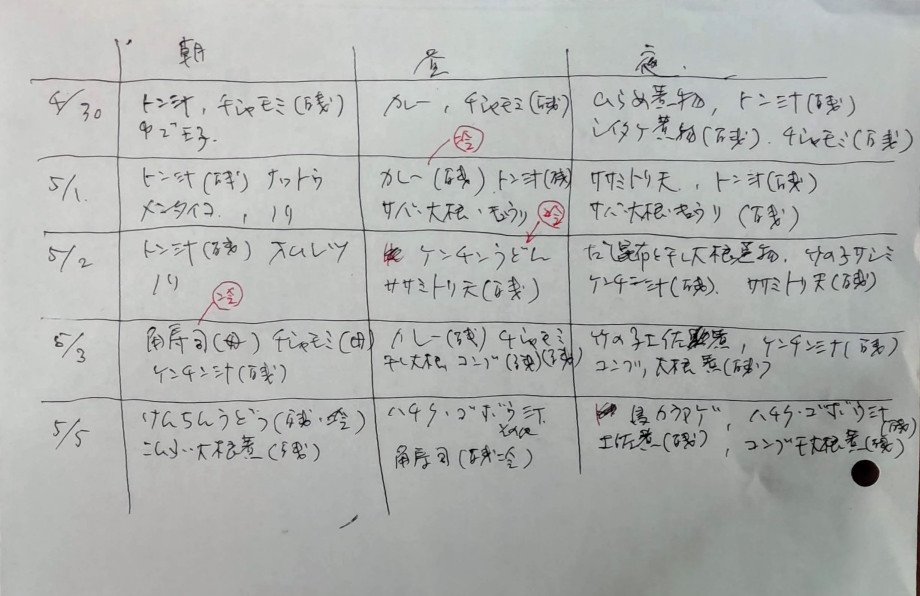 朝 昼 夜
4/30 トン汁, チシャモミ(残) カレー, チシャモミ(残) ひらめ煮物, トン汁(残)
ゆで玉子 シイタケ煮物(残), チシャモミ(残)
冷
5/1 トン汁(残) ナットウ カレー(残) トン汁(残) ササミトリ天, トン汁(残)
メンタイコ, ノリ サバ・大根・きゅうり サバ・大根・きゅうり(残)
冷
5/2 トン汁(残) オムレツ ケンチンうどん だし昆布と干し大根煮物, 竹の子サシミ
ノリ ササミトリ天(残) ケンチン汁(残), ササミトリ天(残)
冷
5/3 角寿司(母) チシャモミ(母) カレー(残) チシャモミ 竹の子土佐煮, ケンチン汁(残)
ケンチン汁(残) 干し大根 コンブ(残)(残) コンブ, 大根煮(残)
5/5 けんちんうどん(残・冷) ハチク・ゴボウ汁 カラアゲ, ハチク・ゴボウ汁(残)
こんぶ・大根煮(残) 角寿司(残冷) 土佐煮(残), コンブ干大根煮(残)